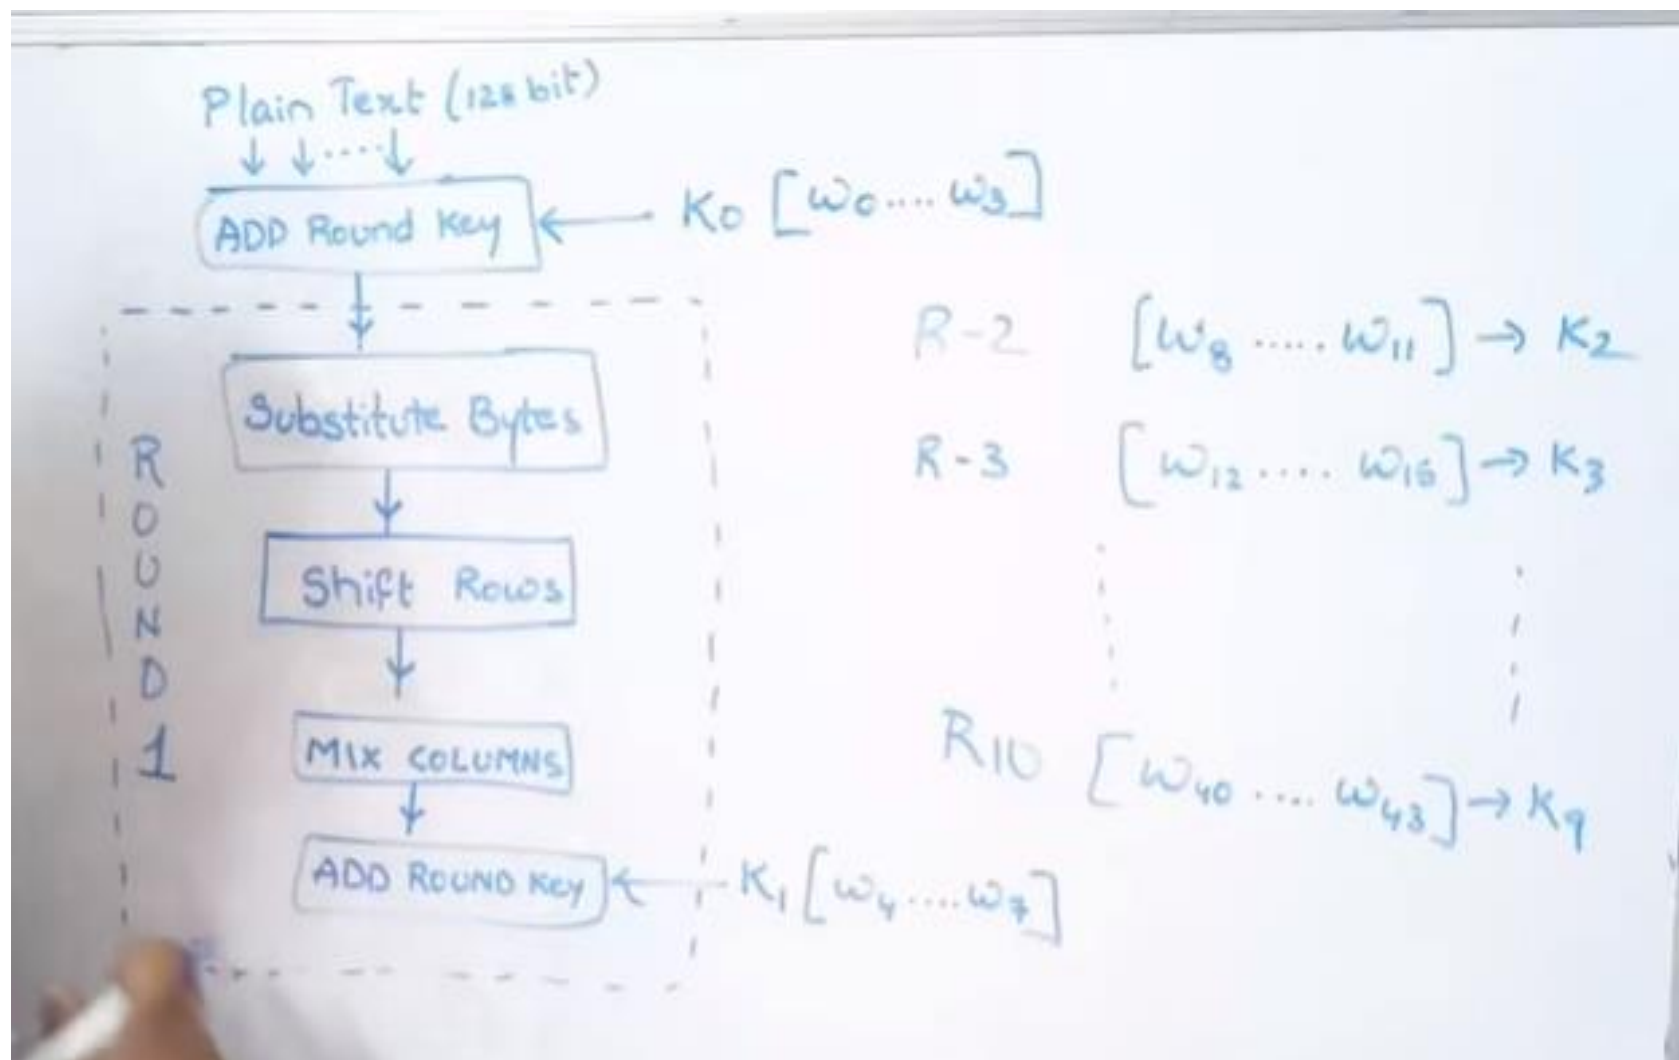 Plain Text (128 bit)
ADD Round Key
K0 [w0.... w3]
Substitute Bytes
Shift Rows
MIX COLUMNS
ADD ROUND Key
K1 [w4 ....w7]
ROUND 1
R-2 [w8 ..... w11] → K2
R-3 [w12 .... w15] → K3
R10 [w40 .... w43] → K9